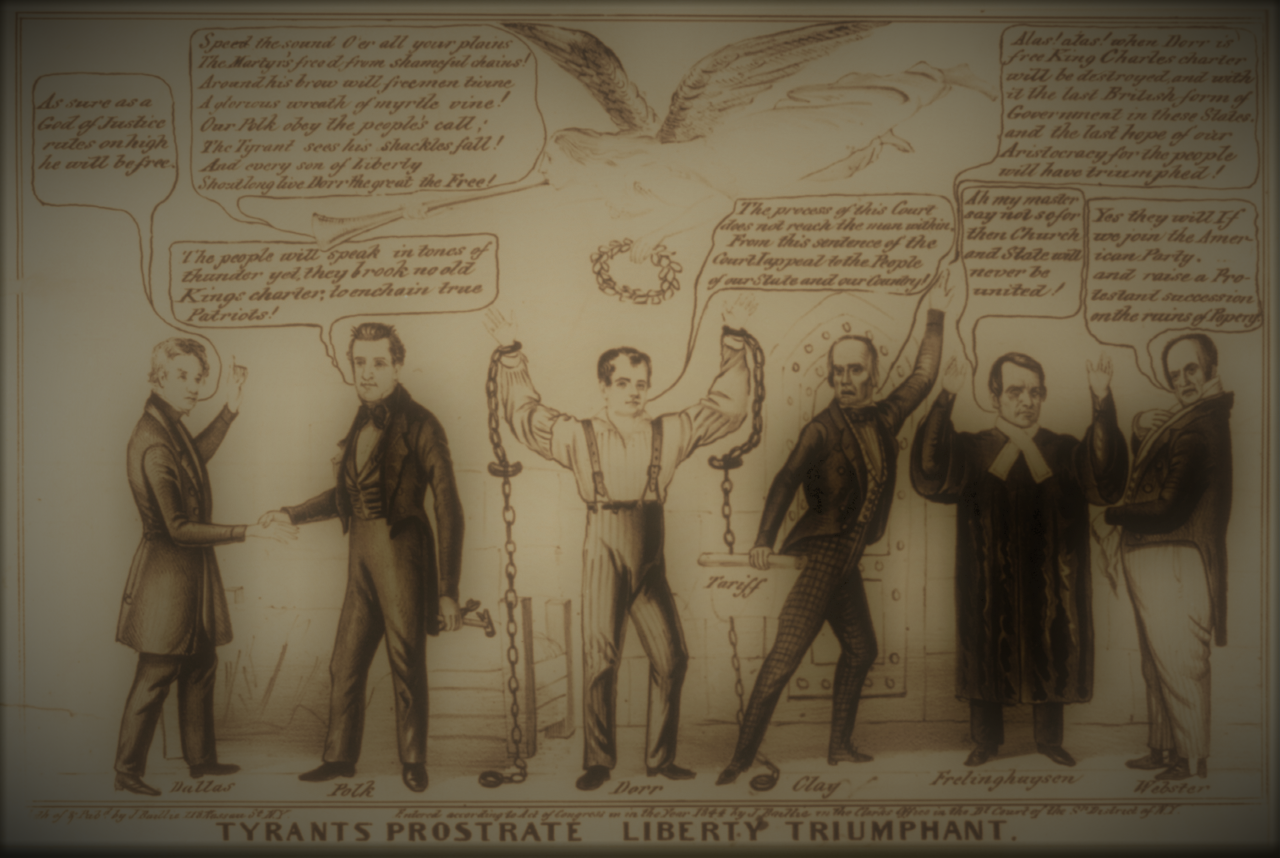 As sure as a
God of Justice
rules on high
he will be free.
Speed the sound O'er all your plains
The Martyr's freed from shameful chains!
Around his brow will freemen twine
A glorious wreath of myrtle vine!
Our Polk obey the people's call;
The Tyrant sees his shackles fall!
And every son of Liberty
Shout long live Dorr the great the Free!
The people will speak in tones of
thunder yet, they brook no old
Kings charter, to enchain true
Patriots!
The process of this Court
does not reach the man within.
From this sentence of the
Court I appeal to the People
of our State and our Country!
Alas! alas! when Dorr is
free King Charles charter
will be destroyed, and with
it the last British form of
Government in these States.
and the last hope of our
Aristocracy for the people
will have triumphed!
Ah my master
say not so for
then Church
and State will
never be
united!
Yes they will If
we join the Amer-
ican Party.
and raise a Pro-
testant succession
on the ruins of Popery.
Tariff
Dallas
Polk
Dorr
Clay
Frelinghuysen
Webster
& Pub. by J. Baillie 118 Nassau St. N.Y.
Entered according to Act of Congress in the Year 1844 by J. Baillie in the Clerks Office in the Dt. Court of the Sn. District of N.Y.
TYRANTS PROSTRATE LIBERTY TRIUMPHANT.